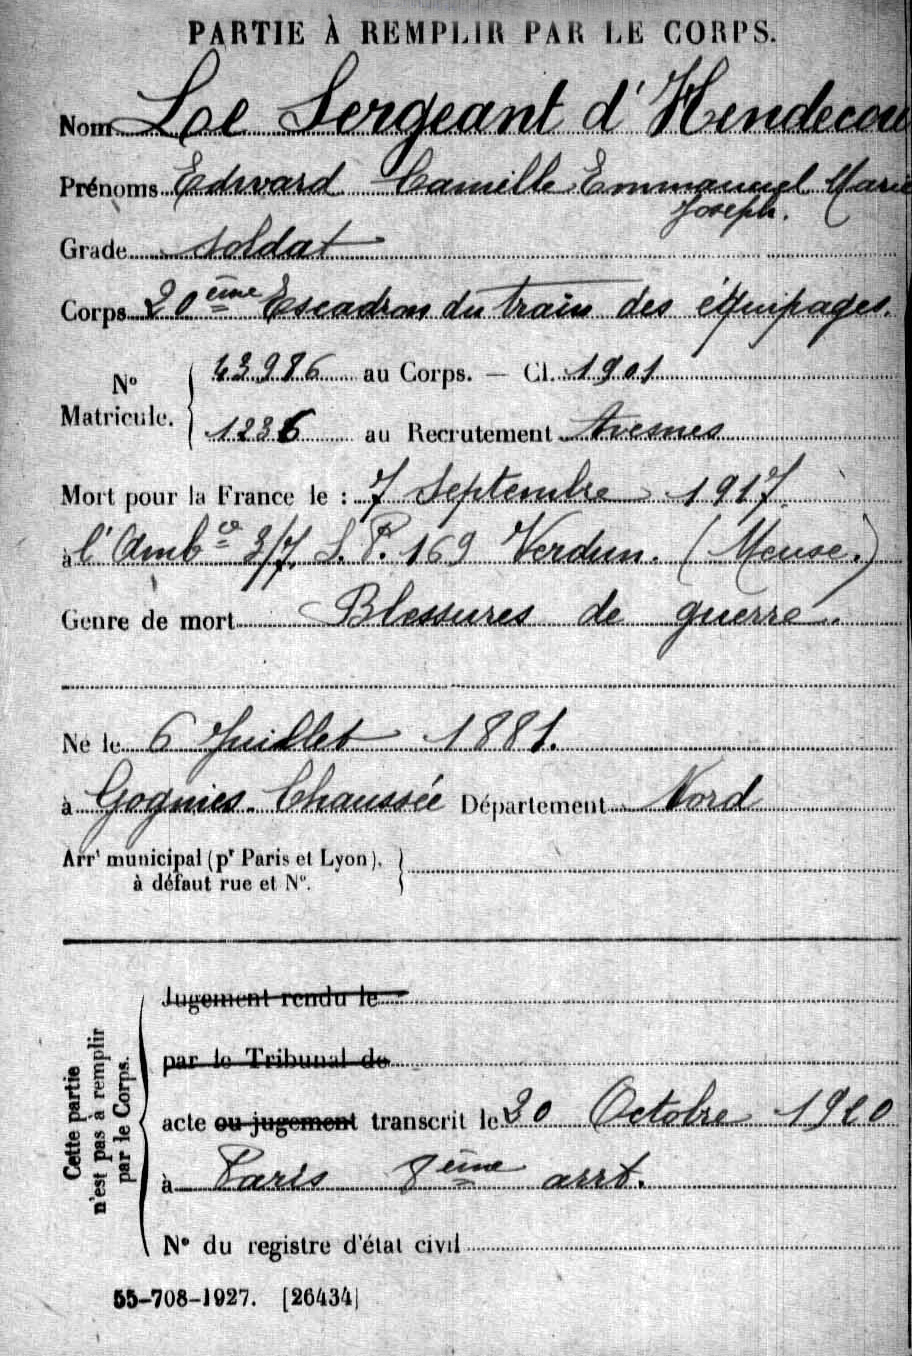 PARTIE À REMPLIR PAR LE CORPS.
Nom Le Sergeant d'Hendecou
Prénoms Edward Camille Emmanuel Marie
Joseph.
Grade soldat
Corps 20ème Escadron du train des équipages.
N° Matricule. 43986 au Corps. — Cl. 1901
1236 au Recrutement Avesnes
Mort pour la France le : 7 Septembre 1917.
à l'Ambce 3/7. S.P. 169 Verdun. (Meuse.)
Genre de mort Blessures de guerre.
Né le 6 Juillet 1881.
à Gognies-Chaussée Département Nord
Arrt municipal (pr Paris et Lyon),
à défaut rue et N°.
Cette partie
n'est pas à remplir
par le Corps.
Jugement rendu le
par le Tribunal de
acte ou jugement transcrit le 20 Octobre 1920
à Paris 8ème arrt.
N° du registre d'état civil
55-708-1927. [26434]